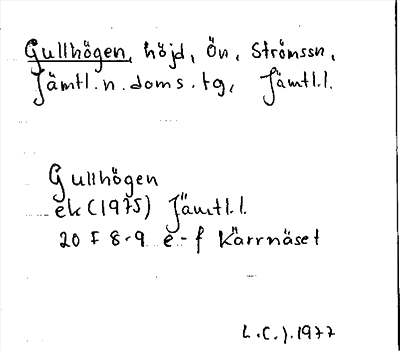 Gullhögen, höjd, Ön, Strömssn,
Jämtl.n.doms.tg, Jämtl.l.
Gullhögen
ek (1975) Jämtl.l.
20 F 8-9 e-f Kärrnäset
L.C.J.1977